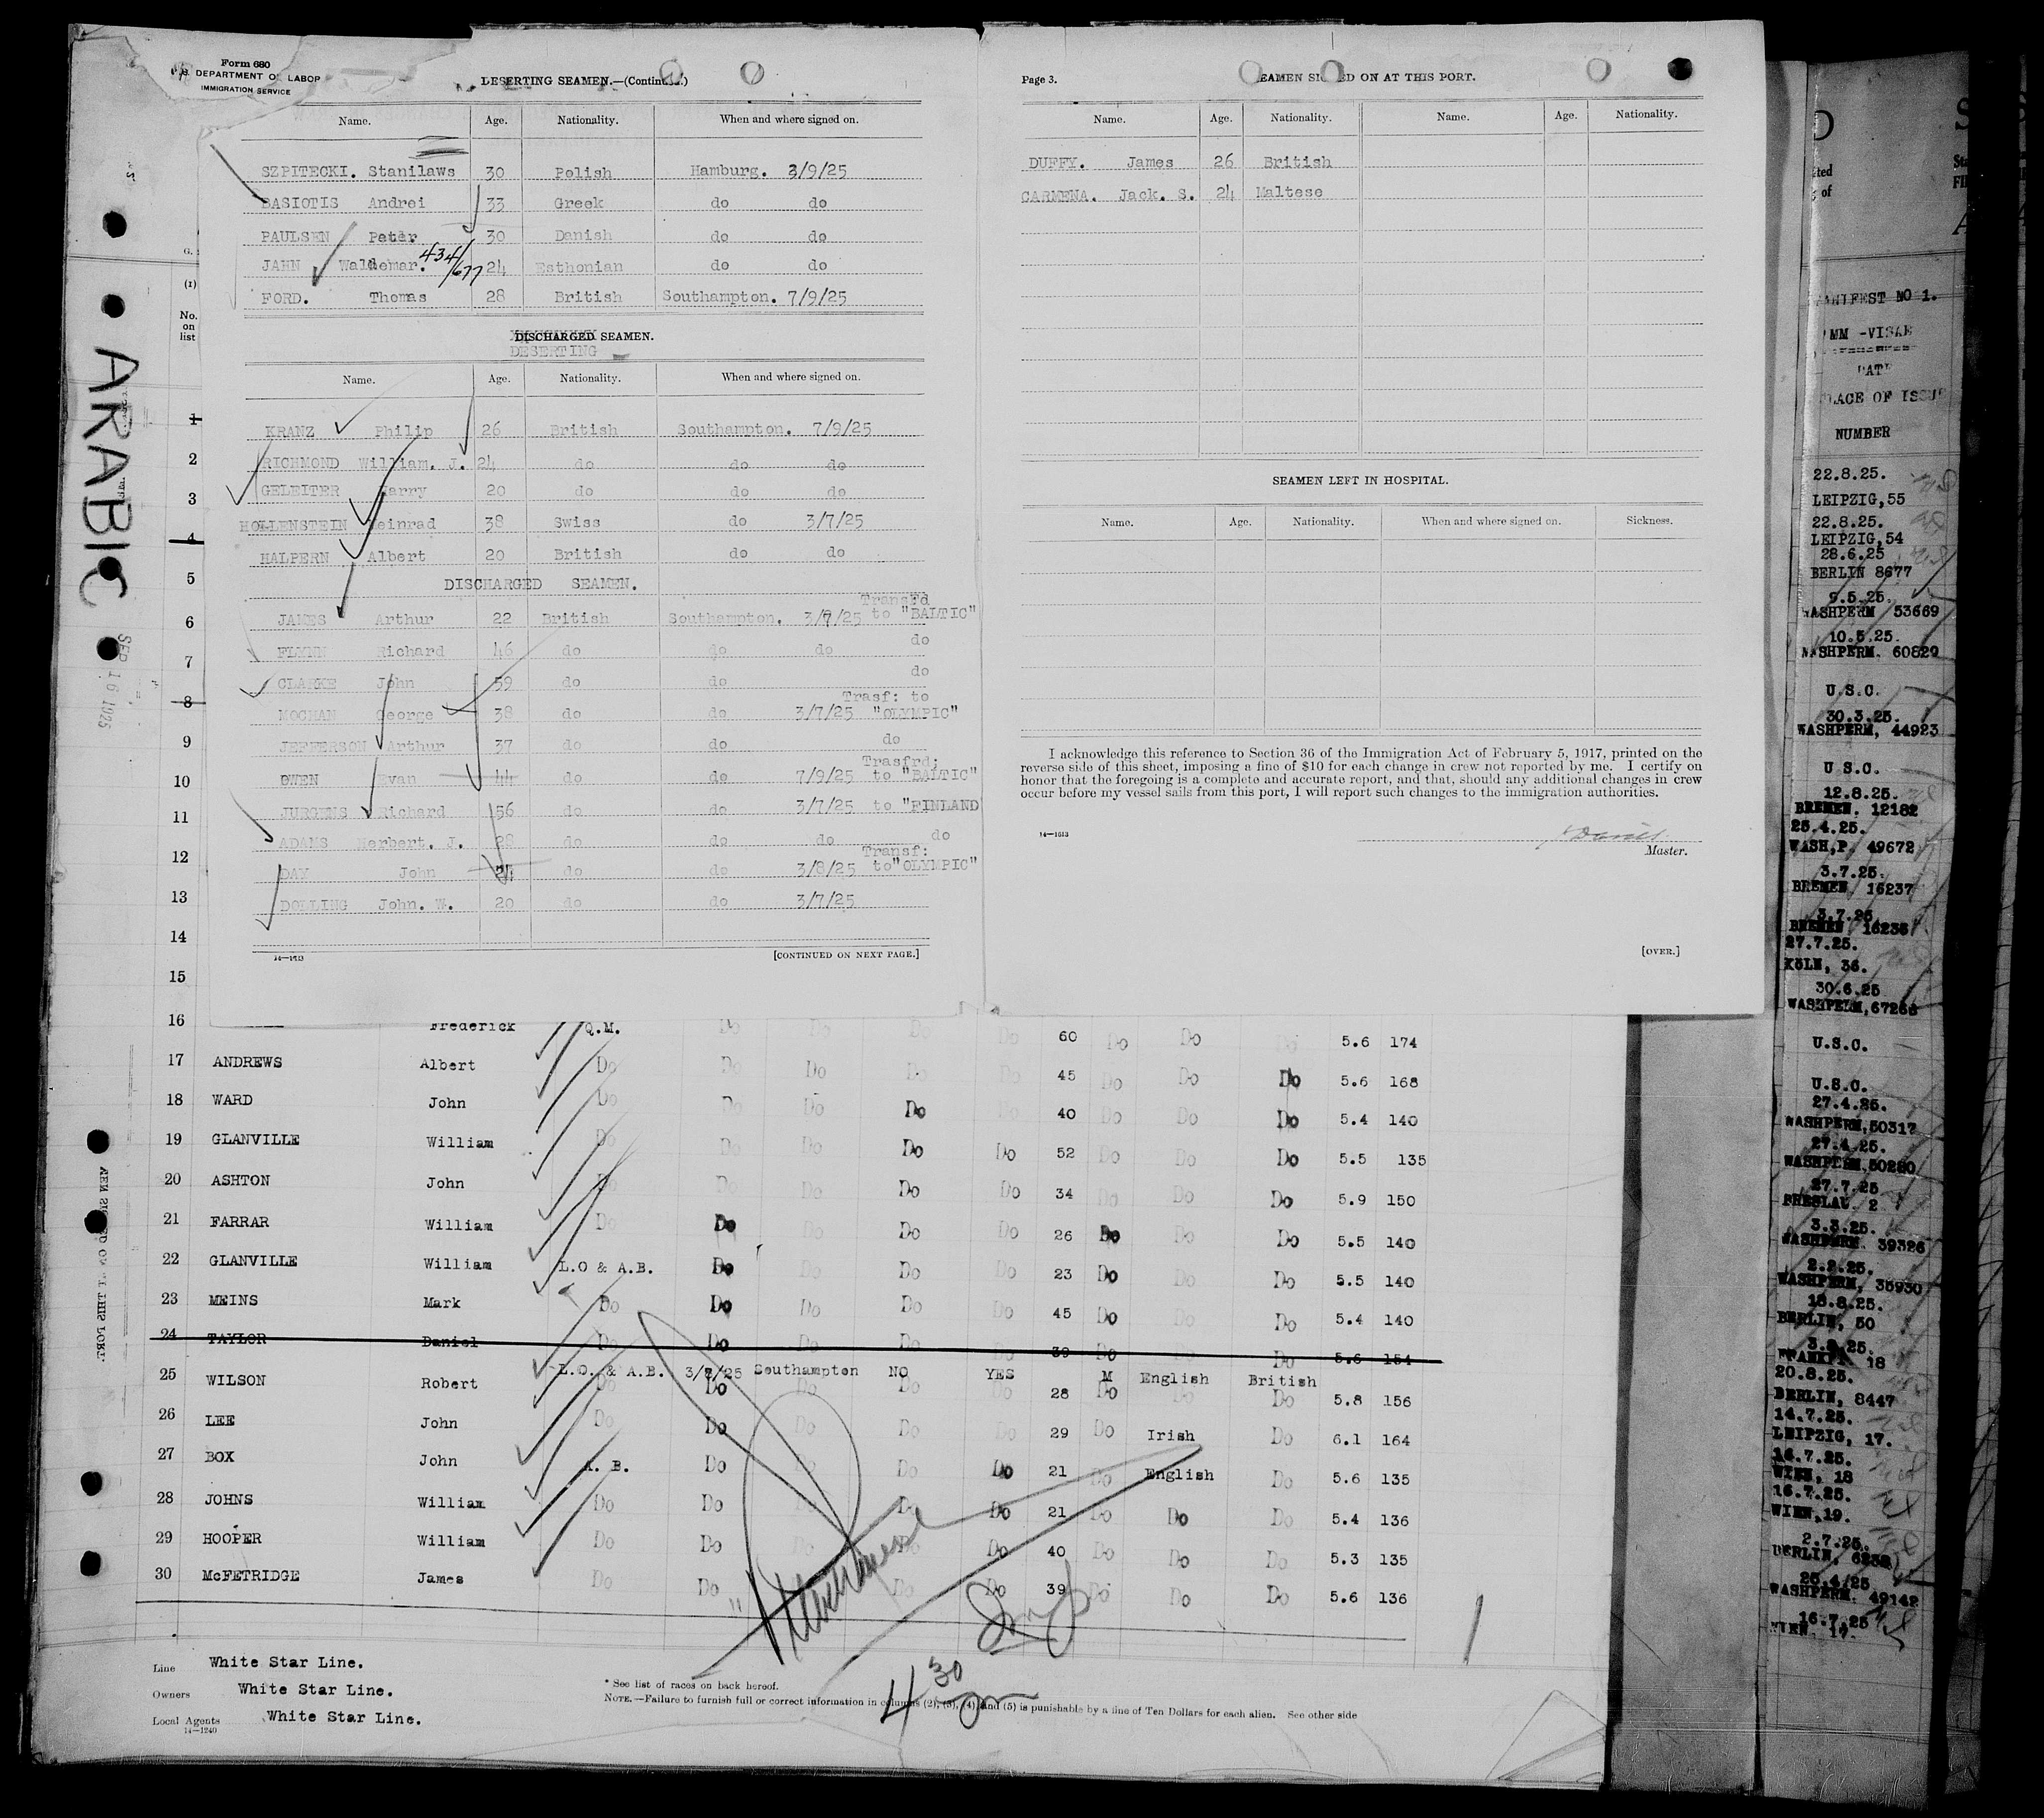 Form 680
U.S. DEPARTMENT OF LABOR
IMMIGRATION SERVICE
DESERTING SEAMEN.—(Continued.)
Name. Age. Nationality. When and where signed on.
SZPITECKI. Stanilaws 30 Polish Hamburg. 3/9/25
BASIOTIS Andrei 33 Greek do do
PAULSEN Peter 30 Danish do do
JAHN Waldemar. 434/677 24 Esthonian do do
FORD. Thomas 28 British Southampton. 7/9/25
DISCHARGED SEAMEN.
DESERTING
Name. Age. Nationality. When and where signed on.
KRANZ Philip 26 British Southampton. 7/9/25
RICHMOND William. J. 24 do do do
GELEITER Harry 20 do do do
HOLLENSTEIN Meinrad 38 Swiss do 3/7/25
HALPERN Albert 20 British do do
DISCHARGED SEAMEN.
JAMES Arthur 22 British Southampton. 3/7/25 Transfd to "BALTIC"
FLYNN Richard 46 do do do do
CLARKE John 59 do do do
MOCHAN George 38 do do 3/7/25 Trasf: to "OLYMPIC"
JEFFERSON Arthur 37 do do do
OWEN Evan 44 do do 7/9/25 Trasfrd; to "BALTIC"
JURGENS Richard 56 do do 3/7/25 to "FINLAND
ADAMS Herbert. J. 28 do do do do
DAY John 24 do do 3/8/25 Transf: to"OLYMPIC"
DOLLING John. W. 20 do do 3/7/25
14—1613 [CONTINUED ON NEXT PAGE.]
Page 3. SEAMEN SIGNED ON AT THIS PORT.
Name. Age. Nationality. Name. Age. Nationality.
DUFFY. James 26 British
CARMENA. Jack. S. 24 Maltese
SEAMEN LEFT IN HOSPITAL.
Name. Age. Nationality. When and where signed on. Sickness.
I acknowledge this reference to Section 36 of the Immigration Act of February 5, 1917, printed on the
reverse side of this sheet, imposing a fine of $10 for each change in crew not reported by me. I certify on
honor that the foregoing is a complete and accurate report, and that, should any additional changes in crew
occur before my vessel sails from this port, I will report such changes to the immigration authorities.
14—1613
Master.
[OVER.]
ARABIC
SEP 16 1925
G.
(1)
No.
on
list
1
2
3
4
5
6
7
8
9
10
11
12
13
14
15
16 Frederick Q.M. Do Do Do Do 60 Do Do Do 5.6 174
17 ANDREWS Albert Do Do Do Do Do 45 Do Do Do 5.6 168
18 WARD John Do Do Do Do Do 40 Do Do Do 5.4 140
19 GLANVILLE William Do Do Do Do Do 52 Do Do Do 5.5 135
20 ASHTON John Do Do Do Do Do 34 Do Do Do 5.9 150
21 FARRAR William Do Do Do Do Do 26 Do Do Do 5.5 140
22 GLANVILLE William L.O & A.B. Do Do Do Do 23 Do Do Do 5.5 140
23 MEINS Mark Do Do Do Do Do 45 Do Do Do 5.4 140
24 TAYLOR Daniel Do Do Do Do Do 39 Do Do 5.6 154
L.O. & A.B. 3/7/25 Southampton NO YES M English British
25 WILSON Robert Do Do Do Do Do 28 Do Do Do 5.8 156
26 LEE John Do Do Do Do Do 29 Do Irish Do 6.1 164
27 BOX John A. B. Do Do Do Do 21 Do English Do 5.6 135
28 JOHNS William Do Do Do Do Do 21 Do Do Do 5.4 136
29 HOOPER William Do Do Do Do Do 40 Do Do Do 5.3 135
30 McFETRIDGE James Do Do Do Do 39 Do Do Do 5.6 136
Line White Star Line.
Owners White Star Line.
Local Agents White Star Line.
14—1240
* See list of races on back hereof.
NOTE.—Failure to furnish full or correct information in columns (2), (3), (4), and (5) is punishable by a fine of Ten Dollars for each alien. See other side
4 30 pm
MANIFEST NO 1.
IMM -VISAE
DATE
PLACE OF ISSUE
NUMBER
22.8.25.
LEIPZIG,55
22.8.25.
LEIPZIG,54
28.6.25
BERLIN 8677
9.5.25.
WASHPERM 53669
10.5.25.
WASHPERM. 60829
U.S.C.
30.3.25.
WASHPERM, 44923
U S.C.
12.8.25.
BREMEN. 12182
25.4.25.
WASH,P. 49672
3.7.25.
BREMEN. 16237
3.7.25
BREMEN 16236
27.7.25.
KöLN, 36.
30.6.25
WASHPERM,67268
U.S.C.
U.S.C.
27.4.25.
WASHPERM,50317
27.4.25.
WASHPERM,50280
27.7.25
BRESLAU 2
3.3.25.
WASHPERM. 39326
2.2.25.
WASHPERM, 35930
18.8.25.
BERLIN, 50
18
20.8.25.
BERLIN, 8447
14.7.25.
LEIPZIG, 17.
16.7.25.
WIEN, 18
16.7.25.
WIEN,19.
2.7.25.
BERLIN, 6232
25.4.25
WASHPERM. 49142
16.7.25
WIEN. 17.